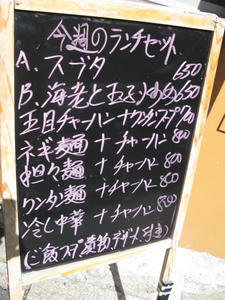 今週のランチセット
A、スブタ 650
B、海老と玉子いため 650
五目チャーハン+ワンタンスープ 700
ネギ麺+チャーハン 800
担々麺+チャーハン 800
ワンタン麺+チャーハン 800
冷し中華+チャーハン 850
(ご飯スープ漬物デザート付き)